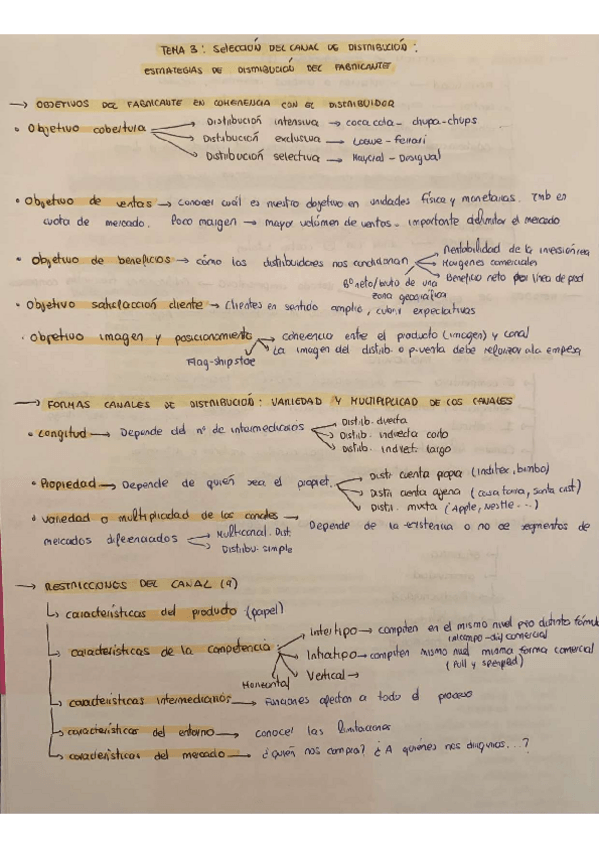 TEMA 3: Selección DEL CANAL DE DISTRIBUCIÓN:
ESTRATEGIAS DE DISTRIBUCIÓN DEL FABRICANTE
→ OBJETIVOS DEL FABRICANTE EN COHERENCIA CON EL DISTRIBUIDOR
• Objetivo cobertura → Distribución intensiva → coca cola - chupa-chups
→ Distribución exclusiva → Loewe - Ferrari
→ Distribución selectiva → - Desigual
• Objetivo de ventas → conocer cuál es nuestro objetivo en unidades física y monetarias. Tmb en
cuota de mercado. Poco margen → mayor volúmen de ventas - importante delimitar el mercado
• Objetivo de beneficios → cómo los distribuidores nos condicionan → Rentabilidad de la inversión
→ Márgenes comerciales
→ Beneficio neto por línea de prod
Bº neto/bruto de una
zona geográfica
• Objetivo satisfacción cliente → Clientes en sentido amplio, cubrir expectativas
• Objetivo imagen y posicionamiento → coherencia entre el producto (imagen) y canal
→ La imagen del distrib. o p.venta debe reforzar a la empresa
Flag-ship stoe
→ FORMAS CANALES DE DISTRIBUCIÓN: VARIEDAD Y MULTIPLICIDAD DE LOS CANALES
• Longitud → Depende del nº de intermediarios → Distrib. directa
→ Distrib. indirecta corto
→ Distrib. indirect. largo
• Propiedad → Depende de quién sea el propiet. → Distr. cuenta propia (Inditex, bimbo)
→ Distr. cuenta ajena (casa tarra, santa cast)
→ Distr. mixta (Apple, Nestle...)
• Variedad o multiplicidad de los canales → Depende de la existencia o no de segmentos de
mercados diferenciados → Multicanal. Dist.
→ Distribu. simple
→ RESTRICCIONES DEL CANAL (4)
↳ características del producto (papel)
↳ características de la competencia: → Intertipo → compiten en el mismo nivel pero distinta fórmula
comercial
→ Intratipo → compiten mismo nivel misma forma comercial
(Pull y
→ Vertical →
Horizontal
↳ características intermediarios → Funciones afectan a todo el proceso
↳ características del entorno → conocer las limitaciones
↳ características del mercado → ¿quién nos compra? ¿A quiénes nos dirigimos...?